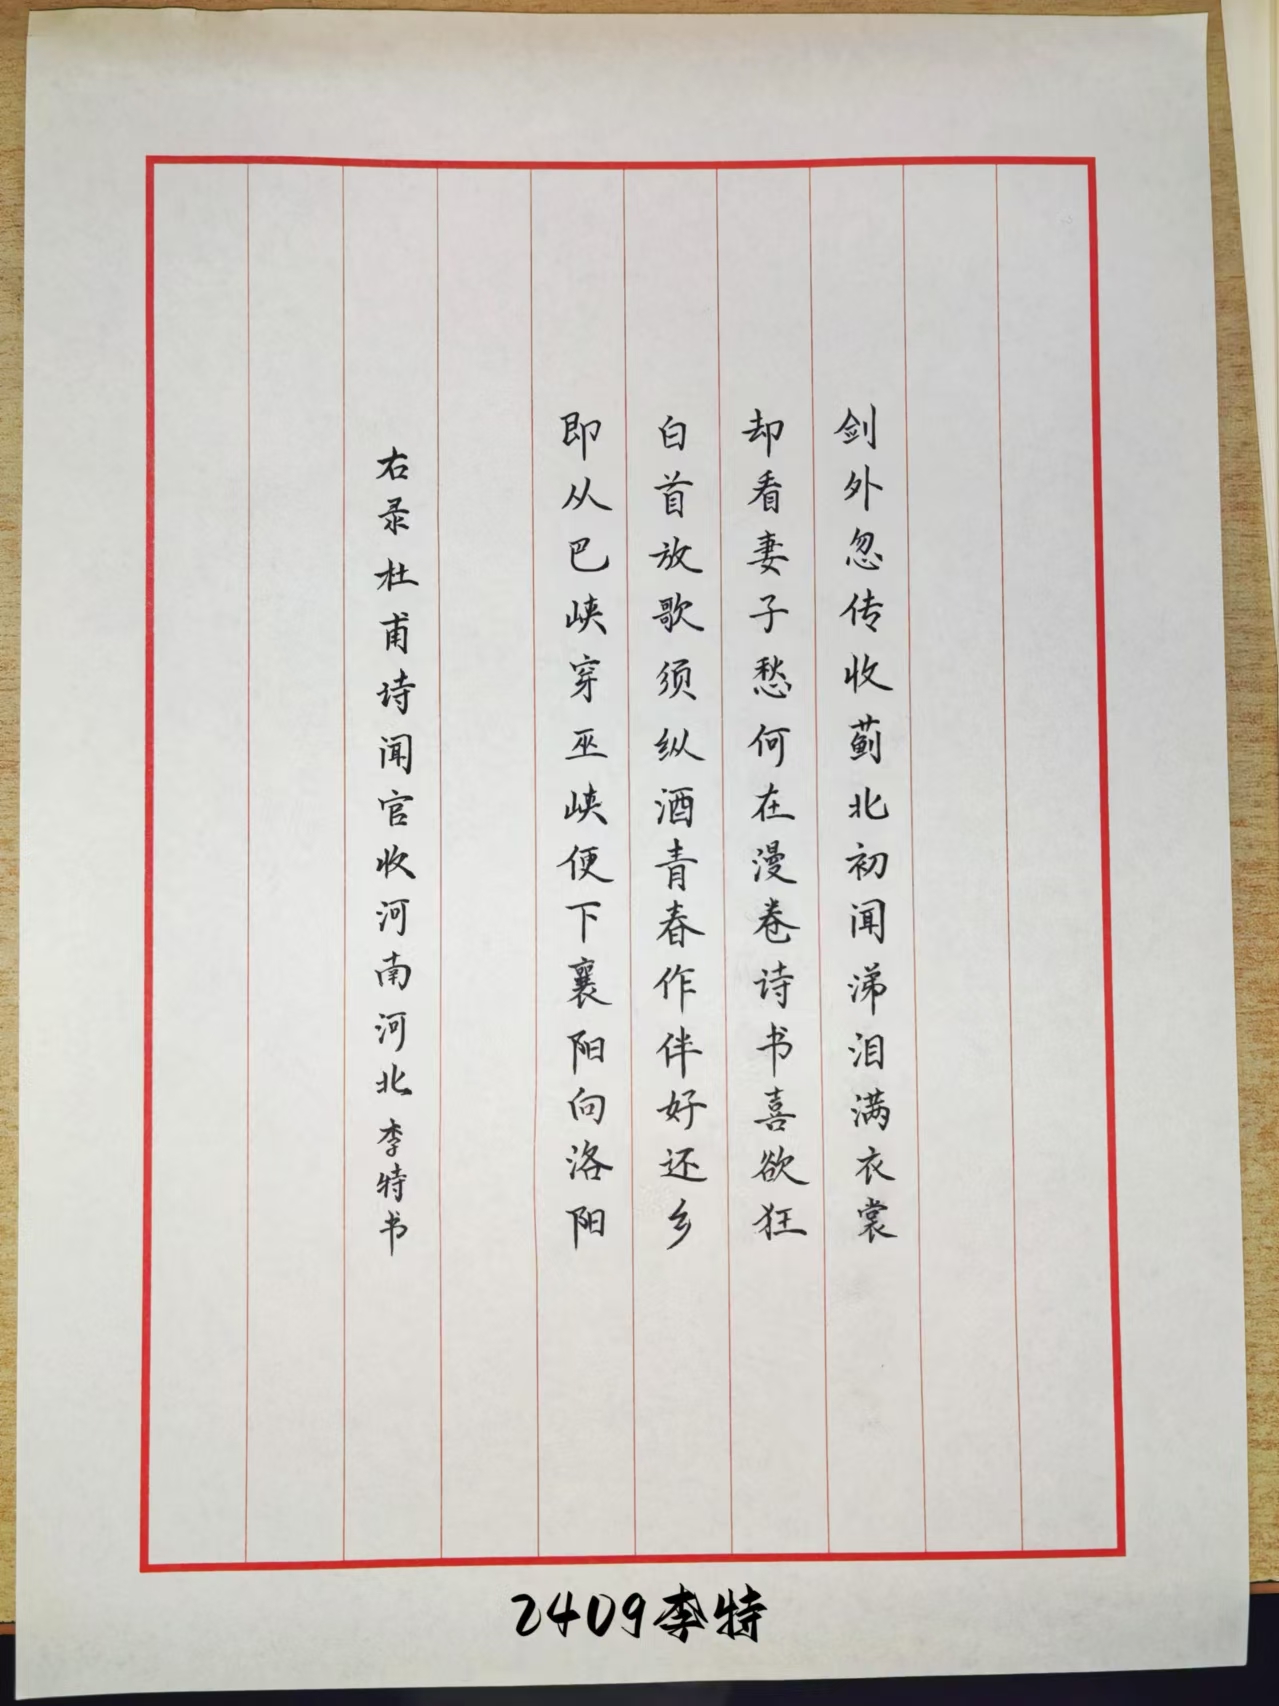 剑外忽传收蓟北初闻涕泪满衣裳
却看妻子愁何在漫卷诗书喜欲狂
白首放歌须纵酒青春作伴好还乡
即从巴峡穿巫峡便下襄阳向洛阳
右录杜甫诗闻官收河南河北李特书
2409李特